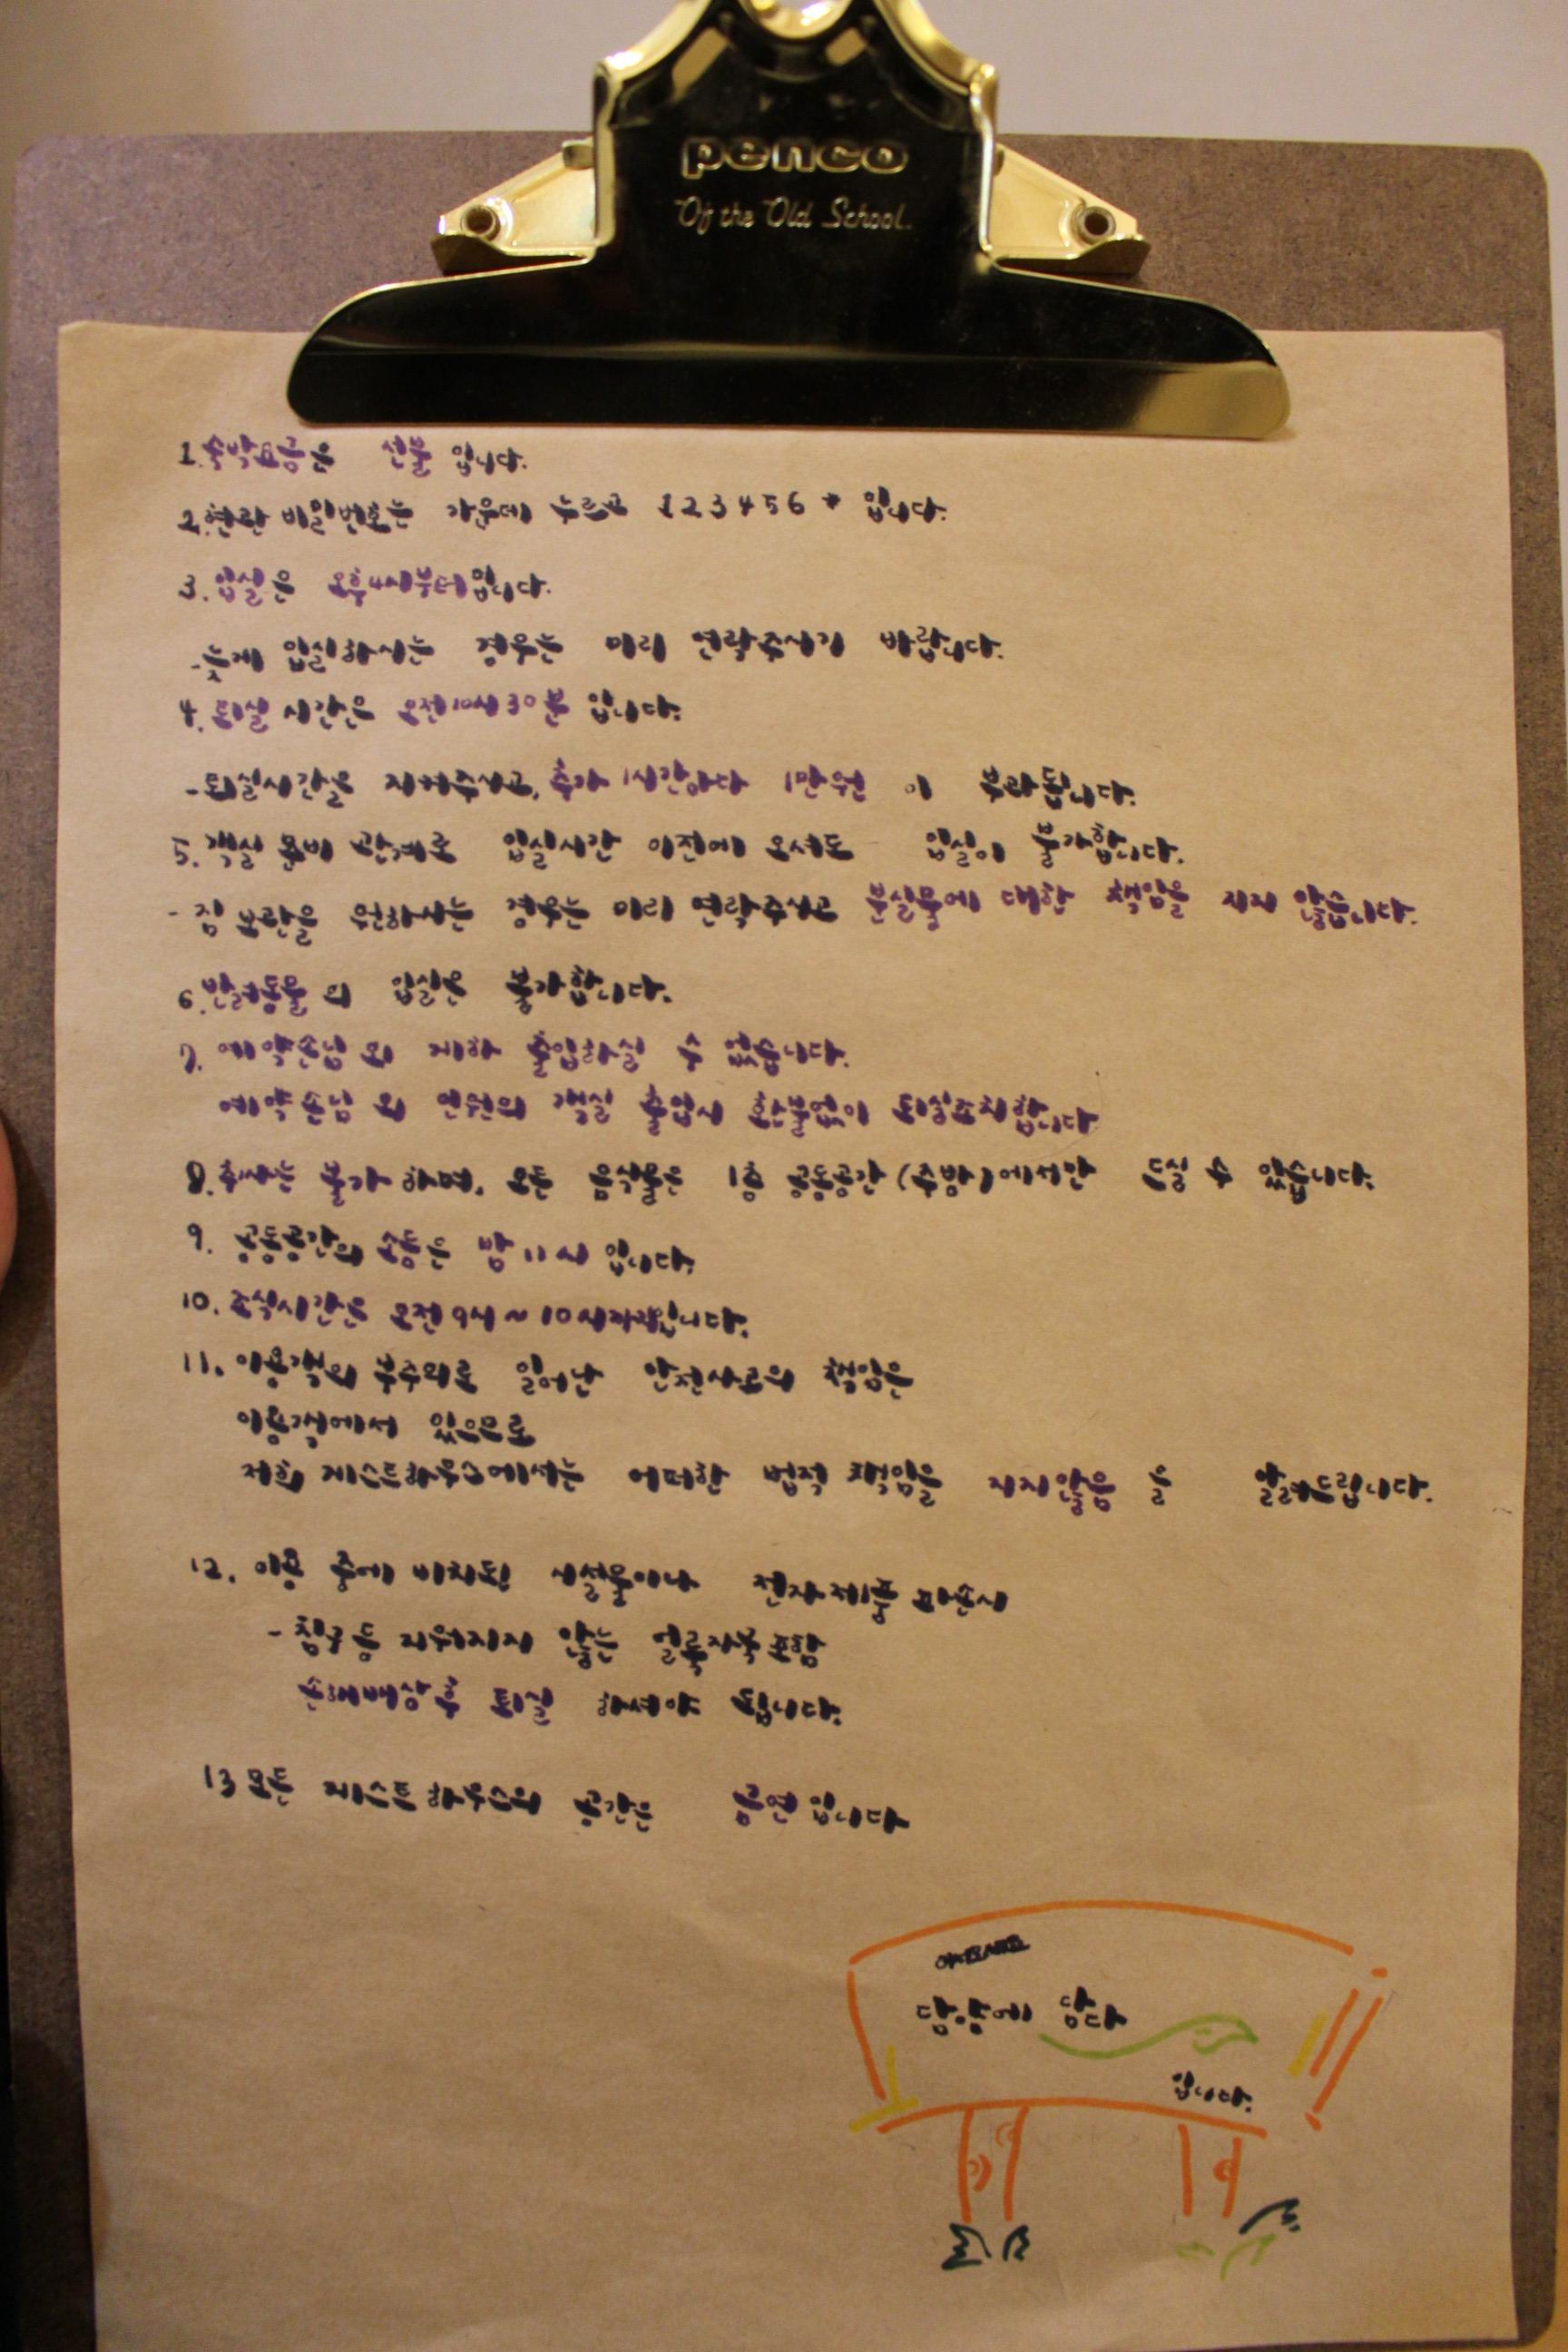 penco
Of the Old School.
1. 숙박요금은 선불 입니다.
2. 현관 비밀번호는 가운데 누르고 123456 * 입니다.
3. 입실은 오후4시부터입니다.
- 늦게 입실하시는 경우는 미리 연락주시기 바랍니다.
4. 퇴실 시간은 오전10시30분 입니다.
- 퇴실시간을 지켜주시고, 추가 1시간마다 1만원 이 부과됩니다.
5. 객실 준비 관계로 입실시간 이전에 오셔도 입실이 불가합니다.
- 짐 보관을 원하시는 경우는 미리 연락주시고 분실물에 대한 책임을 지지 않습니다.
6. 반려동물 의 입실은 불가합니다.
7. 예약손님 외 게하 출입하실 수 없습니다.
예약손님 외 인원의 객실 출입시 환불없이 퇴실조치합니다
8. 취사는 불가 하며, 모든 음식물은 1층 공동공간 (주방)에서만 드실 수 있습니다.
9. 공동공간의 소등은 밤 11시 입니다.
10. 조식시간은 오전 9시 ~ 10시까지입니다.
11. 이용객의 부주의로 일어난 안전사고의 책임은
이용객에게 있으므로
저희 게스트하우스에서는 어떠한 법적 책임을 지지않음 을 알려드립니다.
12. 이용 중에 비치된 시설물이나 전자제품 파손시
- 침구 등 지워지지 않는 얼룩자국 포함
손해배상후 퇴실 하셔야 됩니다.
13 모든 게스트하우스의 공간은 금연 입니다
담양에 담다
입니다.